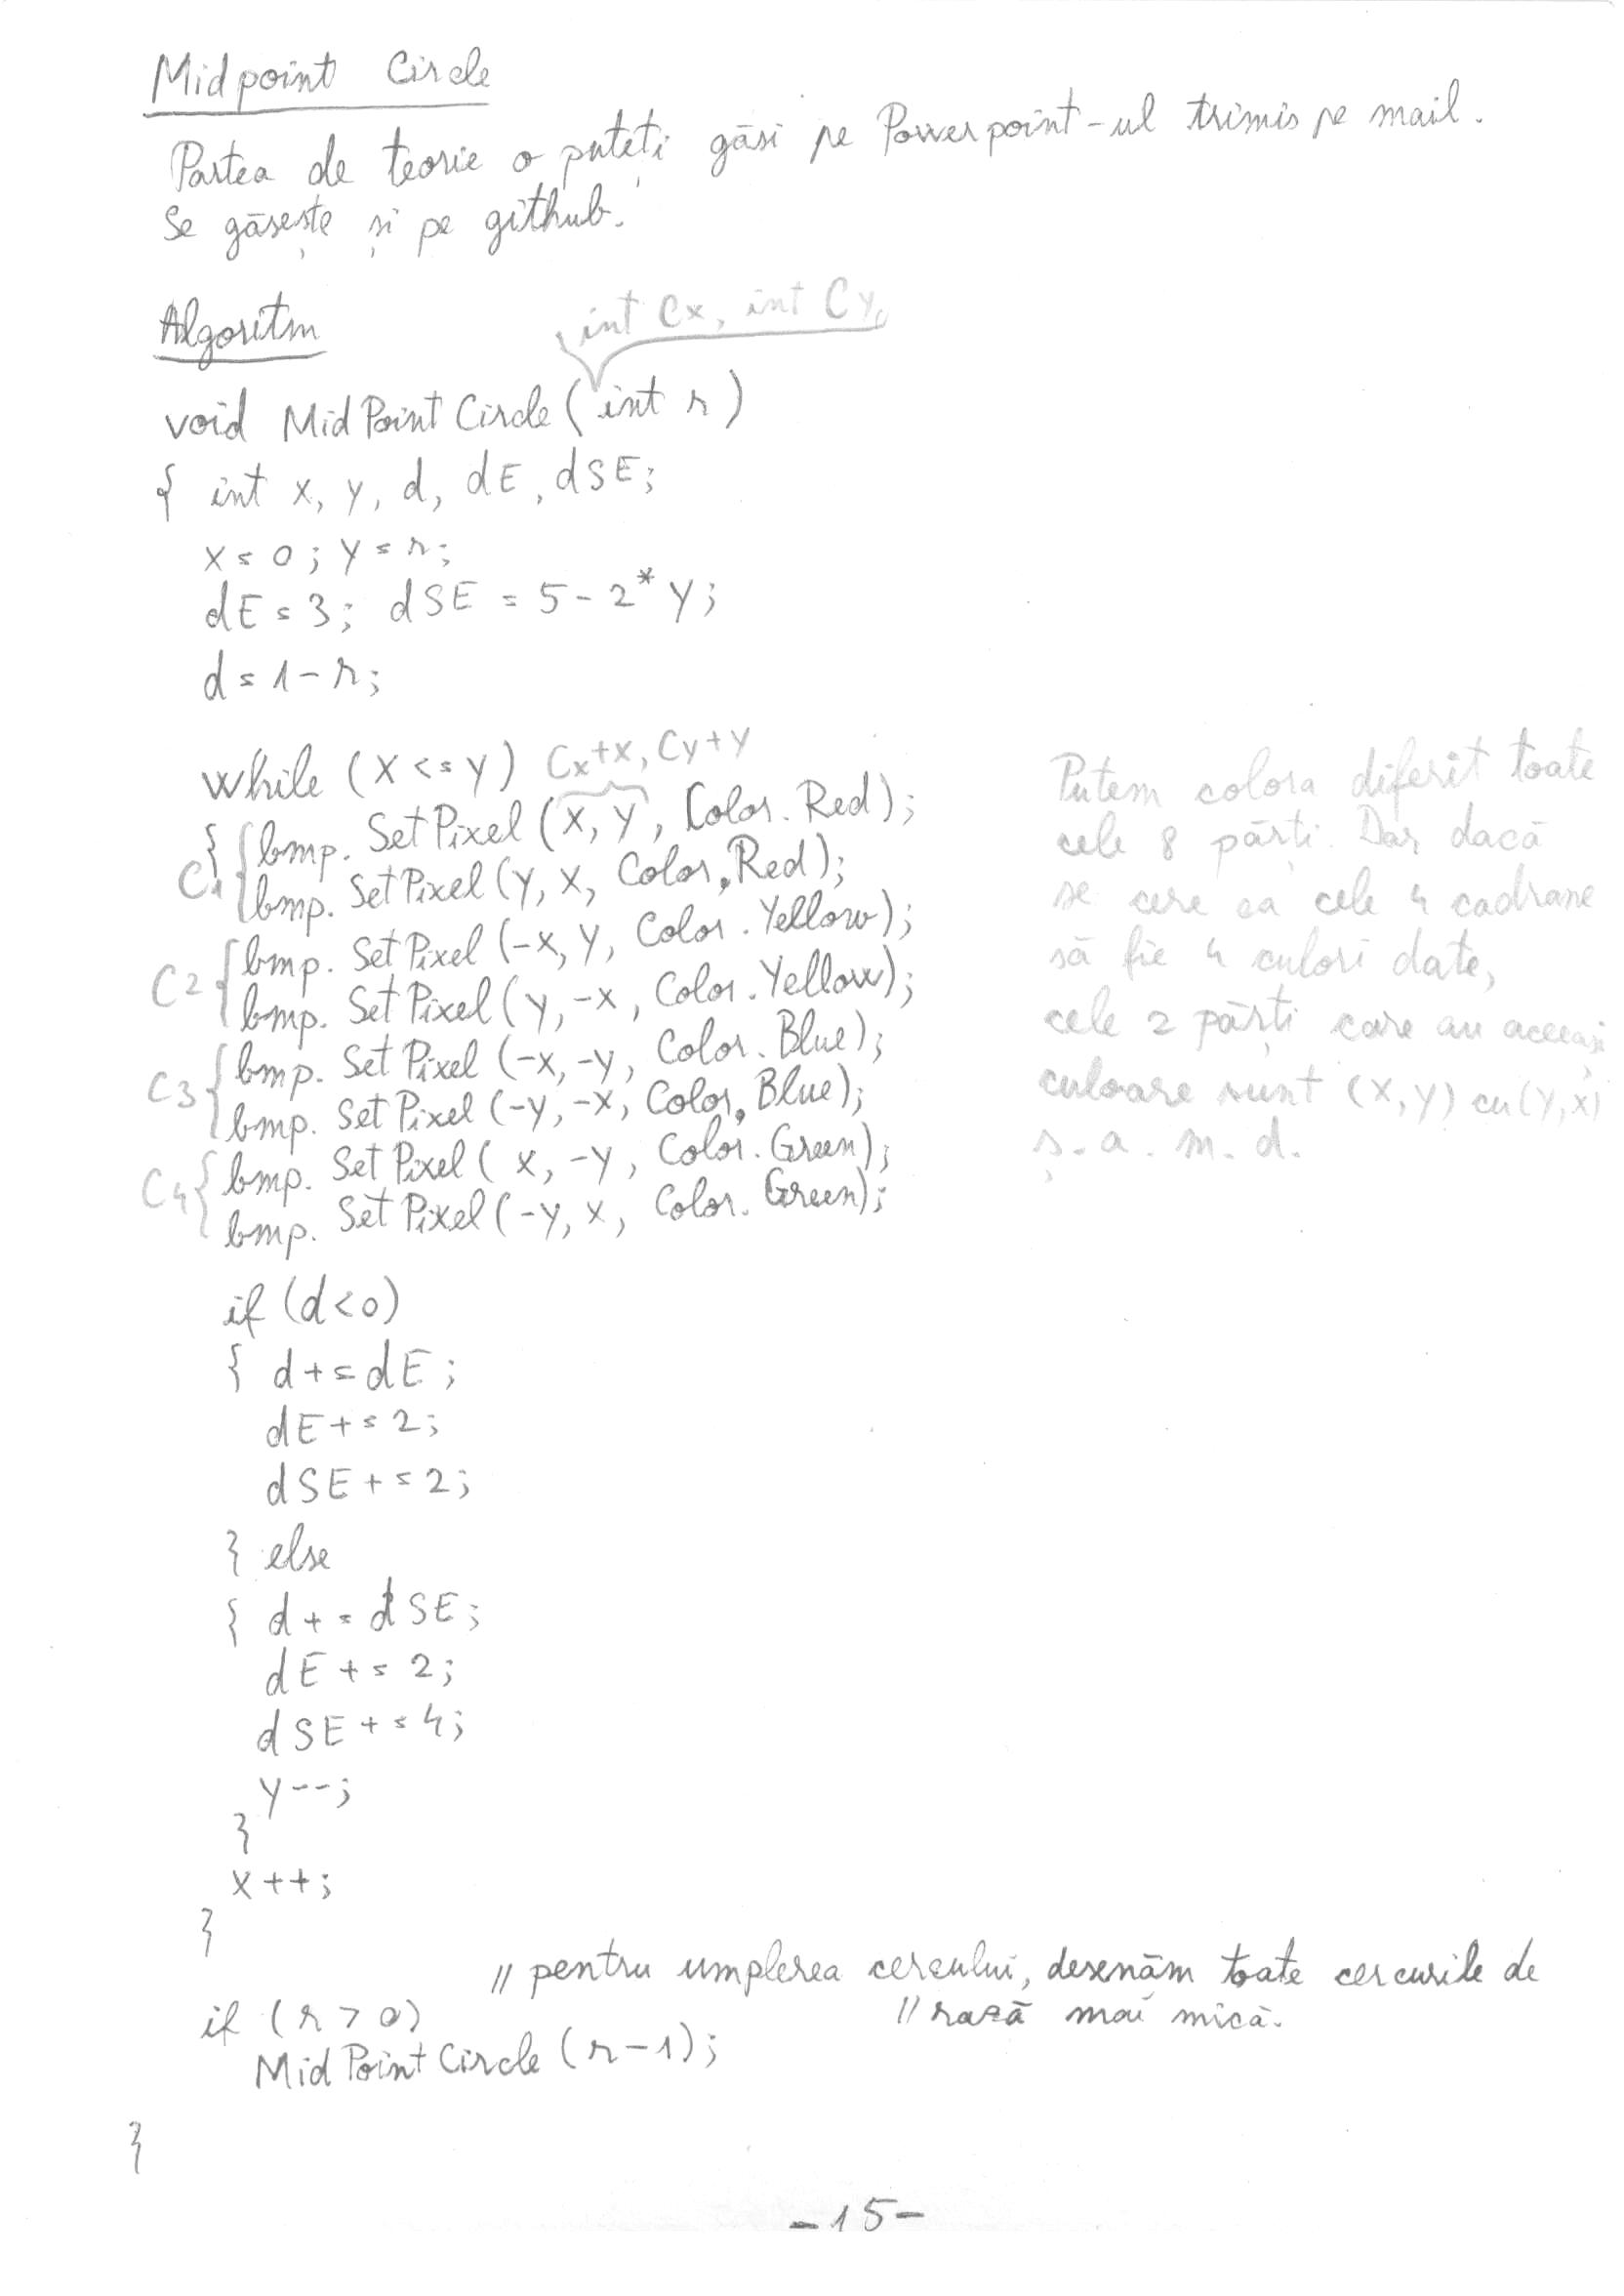 Midpoint Circle
Partea de teorie o puteți găsi pe Powerpoint-ul trimis pe mail.
Se găsește și pe github.
Algoritm
int Cx, int Cy,
void MidPointCircle (int r)
{ int x, y, d, dE, dSE;
x = 0; y = r;
dE = 3; dSE = 5 - 2 * y;
d = 1 - r;
while (x <= y) Cx+x, Cy+y
{ bmp. SetPixel (x, y, Color. Red);
C1 bmp. SetPixel (y, x, Color. Red);
bmp. SetPixel (-x, y, Color. Yellow);
C2 { bmp. SetPixel (y, -x, Color. Yellow);
bmp. SetPixel (-x, -y, Color. Blue);
C3 { bmp. SetPixel (-y, -x, Color. Blue);
bmp. SetPixel ( x, -y, Color. Green);
C4 { bmp. SetPixel (-y, x, Color. Green);
Putem colora diferit toate
cele 8 părți. Dar dacă
se cere ca cele 4 cadrane
să fie 4 culori date,
cele 2 părți care au aceeași
culoare sunt (x, y) cu (y, x)
ș. a. m. d.
if (d < 0)
{ d += dE;
dE += 2;
dSE += 2;
} else
{ d += dSE;
dE += 2;
dSE += 4;
y--;
}
x++;
}
// pentru umplerea cercului, desenăm toate cercurile de
if (r > 0) // rază mai mică.
MidPointCircle (r-1);
}
-15-